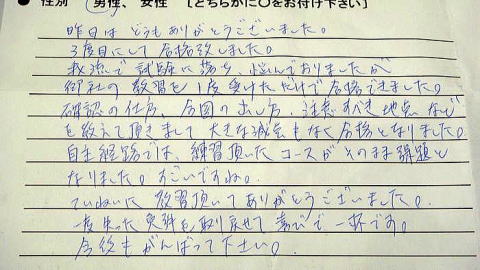 ● 性別 男性、 女性 [どちらかに○をお付け下さい]
昨日は どうもありがとうございました。
3度目にして 合格致しました。
我流で 試験に落ち、悩んでおりましたが
御社の教習を1度受けただけで合格できました。
確認の仕方、合図の出し方、注意すべき地点など
を教えて頂きまして 大きな減点もなく合格となりました。
自主経路では、練習頂いたコースがそのまま課題と
なりました。すごいですね。
ていねいに 教習頂いてありがとうございました。
一度失った免許を取り戻せて 喜びで一杯です。
今後もがんばって下さい。